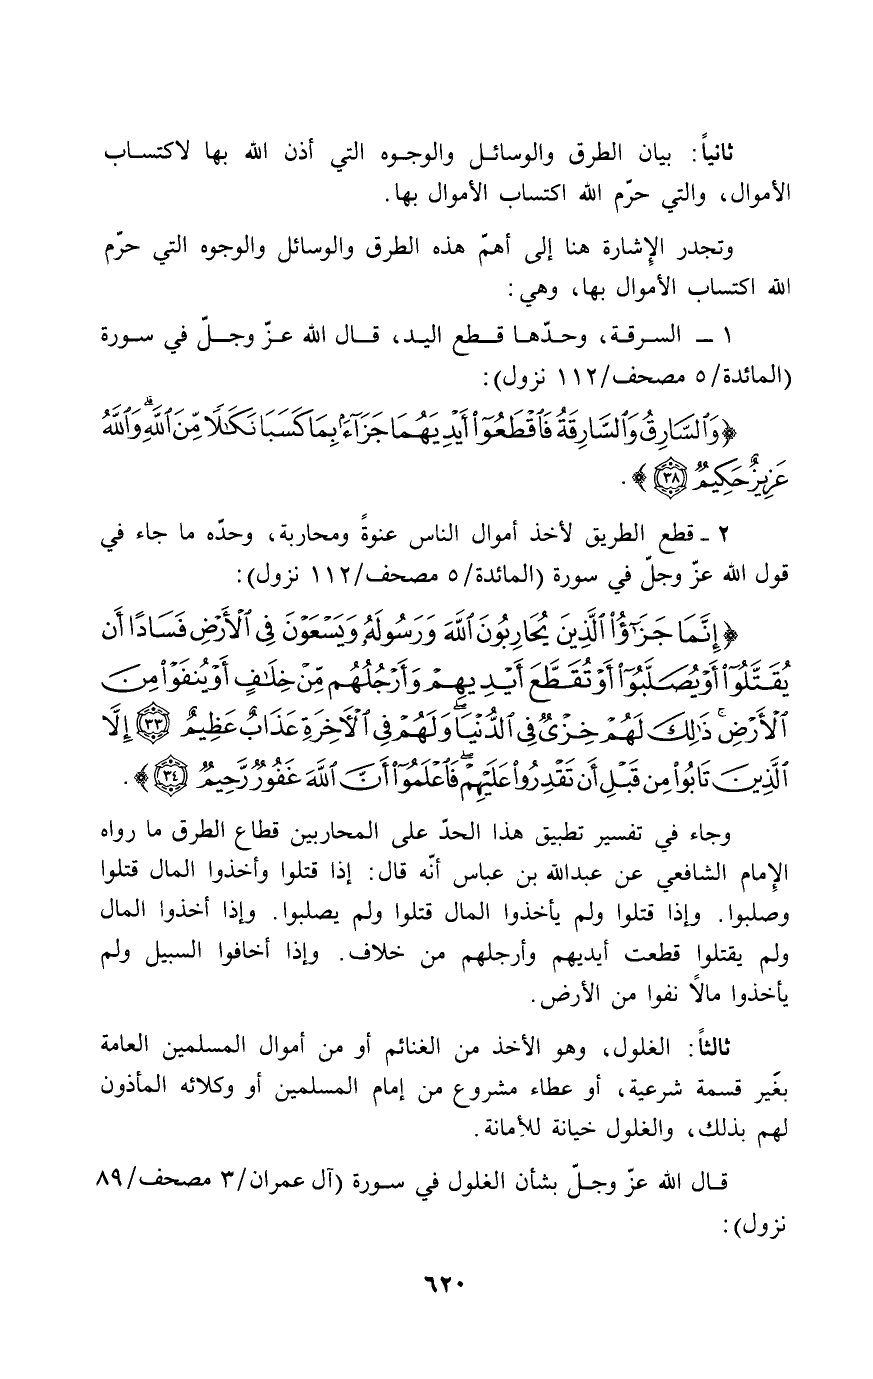 ثانياً: بيان الطرق والوسائـل والوجـوه التي أذن الله بها لاكتسـاب
الأموال، والتي حرّم الله اكتساب الأموال بها.
وتجدر الإشارة هنا إلى أهمّ هذه الطرق والوسائل والوجوه التي حرّم
الله اكتساب الأموال بها، وهي:
١ ــ السـرقـة، وحـدّهـا قـطع اليـد، قـال الله عـزّ وجـلّ في سـورة
(المائدة/٥ مصحف/١١٢ نزول):
﴿وَٱلسَّارِقُ وَٱلسَّارِقَةُ فَٱقْطَعُوٓا۟ أَيْدِيَهُمَا جَزَآءًۢ بِمَا كَسَبَا نَكَٰلًا مِّنَ ٱللَّهِۗ وَٱللَّهُ
عَزِيزٌ حَكِيمٌ ٣٨﴾.
٢ ـ قطع الطريق لأخذ أموال الناس عنوةً ومحاربة، وحدّه ما جاء في
قول الله عزّ وجلّ في سورة (المائدة/٥ مصحف/١١٢ نزول):
﴿إِنَّمَا جَزَٰٓؤُا۟ ٱلَّذِينَ يُحَارِبُونَ ٱللَّهَ وَرَسُولَهُۥ وَيَسْعَوْنَ فِى ٱلْأَرْضِ فَسَادًا أَن
يُقَتَّلُوٓا۟ أَوْ يُصَلَّبُوٓا۟ أَوْ تُقَطَّعَ أَيْدِيهِمْ وَأَرْجُلُهُم مِّنْ خِلَٰفٍ أَوْ يُنفَوْا۟ مِنَ
ٱلْأَرْضِۚ ذَٰلِكَ لَهُمْ خِزْىٌ فِى ٱلدُّنْيَاۖ وَلَهُمْ فِى ٱلْءَاخِرَةِ عَذَابٌ عَظِيمٌ ٣٣ إِلَّا
ٱلَّذِينَ تَابُوا۟ مِن قَبْلِ أَن تَقْدِرُوا۟ عَلَيْهِمْۖ فَٱعْلَمُوٓا۟ أَنَّ ٱللَّهَ غَفُورٌ رَّحِيمٌ ٣٤﴾.
وجاء في تفسير تطبيق هذا الحدّ على المحاربين قطاع الطرق ما رواه
الإمام الشافعي عن عبدالله بن عباس أنّه قال: إذا قتلوا وأخذوا المال قتلوا
وصلبوا. وإذا قتلوا ولم يأخذوا المال قتلوا ولم يصلبوا. وإذا أخذوا المال
ولم يقتلوا قطعت أيديهم وأرجلهم من خلاف. وإذا أخافوا السبيل ولم
يأخذوا مالاً نفوا من الأرض.
ثالثاً: الغلول، وهو الأخذ من الغنائم أو من أموال المسلمين العامة
بغَير قسمة شرعية، أو عطاء مشروع من إمام المسلمين أو وكلائه المأذون
لهم بذلك، والغلول خيانة للأمانة.
قـال الله عزّ وجـلّ بشأن الغلول في سـورة (آل عمران/٣ مصحف/٨٩
نزول):
٦٢٠